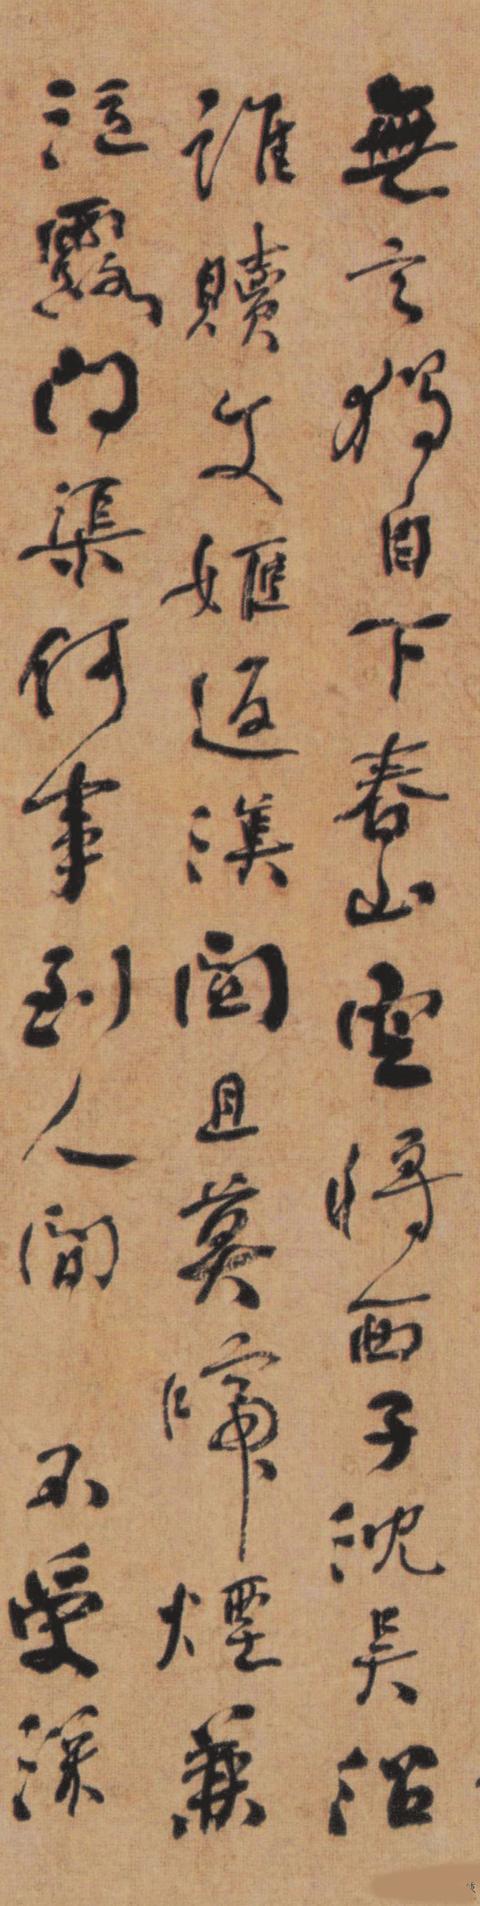 無言獨自下春山空將西子沈吴沼
誰贖文姬返漢關且莫啼煙兼
泣露問渠何事到人間 不受深